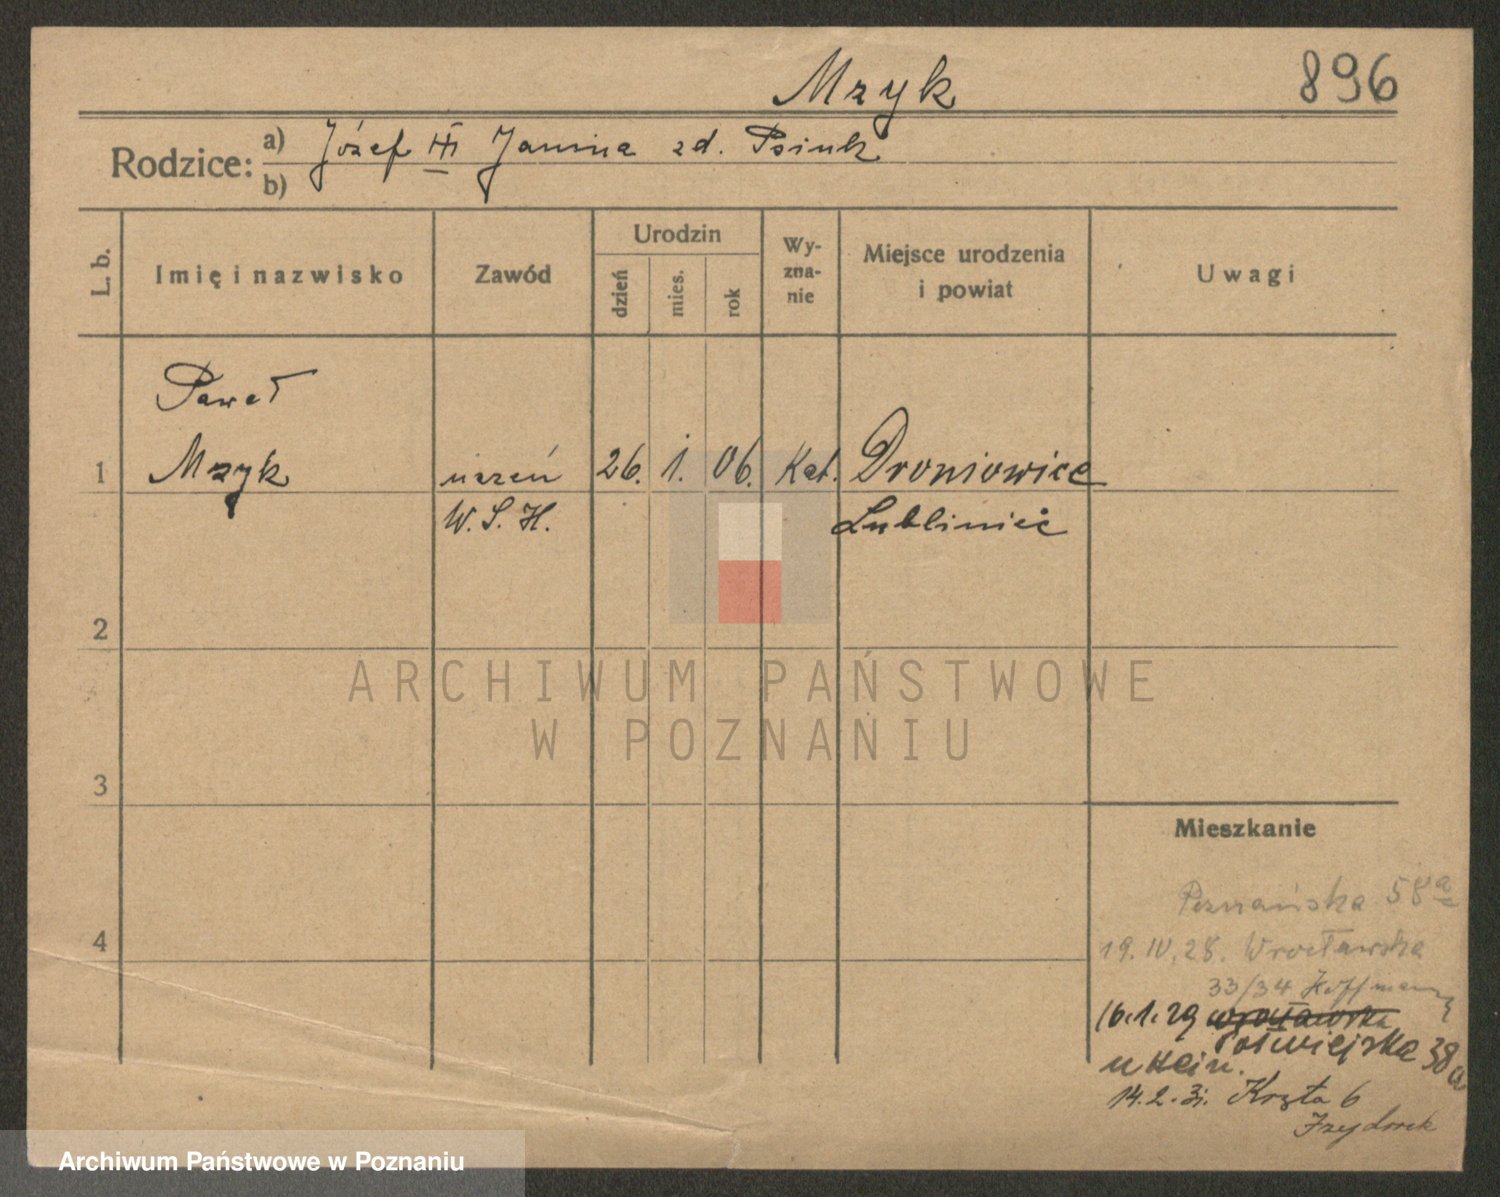 Mzyk
896
Rodzice:
a) Józef Janina zd.
b)
L. b.
Imię i nazwisko
Zawód
Urodzin
dzień
mies.
rok
Wy-
zna-
nie
Miejsce urodzenia
i powiat
Uwagi
Paweł
1 Mzyk uczeń 26. 1. 06. Kat. Droniowice
W. S. H. Lubliniec
2
ARCHIWUM PAŃSTWOWE
W POZNANIU
3
Mieszkanie
Poznańska 58a
4
19. IV. 28. Wrocławska
33/34 Hoffmann
16.1.29 wrocławska
Półwiejska 38a
u
14.2.31. Kręta 6
Archiwum Państwowe w Poznaniu